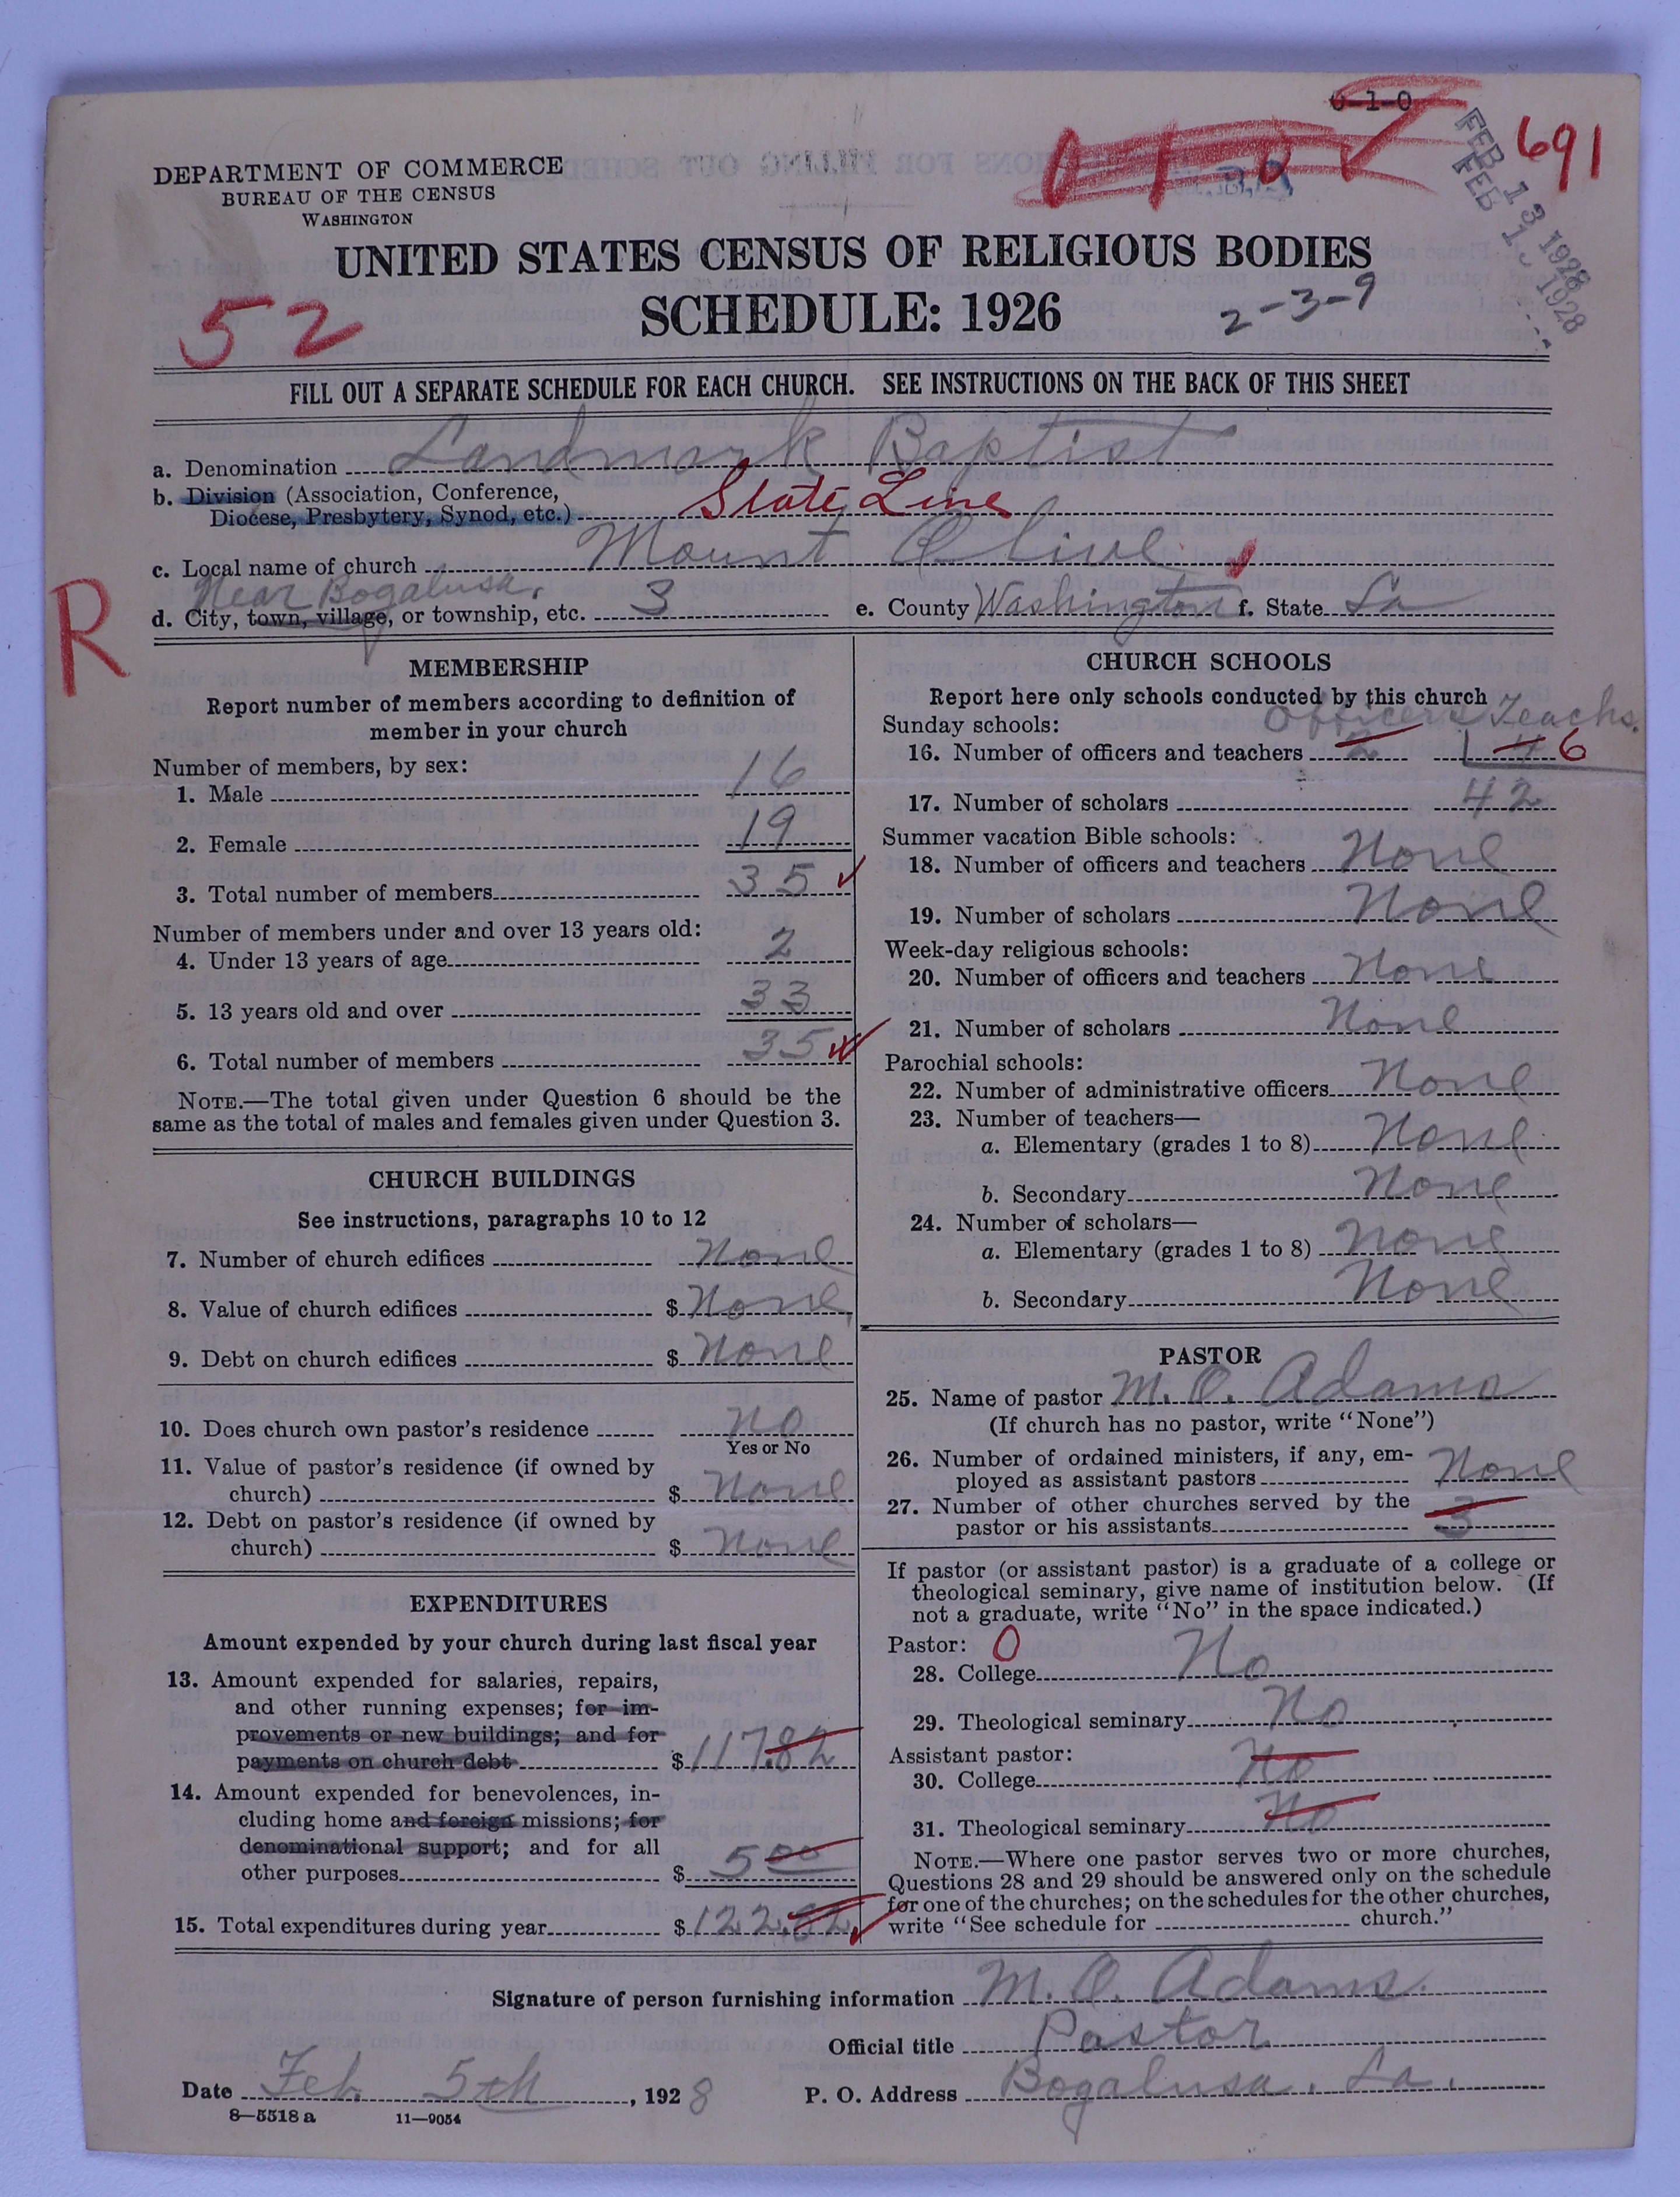 0-1-0
691
FEB 13 1928
FEB 1 1928
DEPARTMENT OF COMMERCE
BUREAU OF THE CENSUS
WASHINGTON
UNITED STATES CENSUS OF RELIGIOUS BODIES
SCHEDULE: 1926
2-3-9
52
FILL OUT A SEPARATE SCHEDULE FOR EACH CHURCH. SEE INSTRUCTIONS ON THE BACK OF THIS SHEET
a. Denomination Landmark Baptist
b. Division (Association, Conference,
Diocese, Presbytery, Synod, etc.) State Line
c. Local name of church Mount Olive
Near Bogalusa.
d. City, town, village, or township, etc. 3 e. County Washington f. State La
R
MEMBERSHIP
Report number of members according to definition of
member in your church
Number of members, by sex:
1. Male 16
2. Female 19
3. Total number of members 35
Number of members under and over 13 years old:
4. Under 13 years of age 2
5. 13 years old and over 33
6. Total number of members 35
NOTE.—The total given under Question 6 should be the
same as the total of males and females given under Question 3.
CHURCH BUILDINGS
See instructions, paragraphs 10 to 12
7. Number of church edifices None
8. Value of church edifices $ None
9. Debt on church edifices $ None
10. Does church own pastor's residence No
Yes or No
11. Value of pastor's residence (if owned by
church) $ None
12. Debt on pastor's residence (if owned by
church) $ None
EXPENDITURES
Amount expended by your church during last fiscal year
13. Amount expended for salaries, repairs,
and other running expenses; for im-
provements or new buildings; and for
payments on church debt $ 117.82
14. Amount expended for benevolences, in-
cluding home and foreign missions; for
denominational support; and for all
other purposes $ 5 00
15. Total expenditures during year $ 122.82
CHURCH SCHOOLS
Report here only schools conducted by this church
Officers Teachs.
Sunday schools:
16. Number of officers and teachers 2 4 6
17. Number of scholars 42
Summer vacation Bible schools:
18. Number of officers and teachers None
19. Number of scholars None
Week-day religious schools:
20. Number of officers and teachers None
21. Number of scholars None
Parochial schools:
22. Number of administrative officers None
23. Number of teachers—
a. Elementary (grades 1 to 8) None
b. Secondary None
24. Number of scholars—
a. Elementary (grades 1 to 8) None
b. Secondary None
PASTOR
25. Name of pastor M. O. Adams
(If church has no pastor, write "None")
26. Number of ordained ministers, if any, em-
ployed as assistant pastors None
27. Number of other churches served by the
pastor or his assistants 3
If pastor (or assistant pastor) is a graduate of a college or
theological seminary, give name of institution below. (If
not a graduate, write "No" in the space indicated.)
Pastor: 0
28. College No
29. Theological seminary No
Assistant pastor:
30. College No
31. Theological seminary No
NOTE.—Where one pastor serves two or more churches,
Questions 28 and 29 should be answered only on the schedule
for one of the churches; on the schedules for the other churches,
write "See schedule for church."
Signature of person furnishing information M. O. Adams.
Official title Pastor
Date Feb. 5th, 1928 P. O. Address Bogalusa, La.
8—5518 a 11—9054